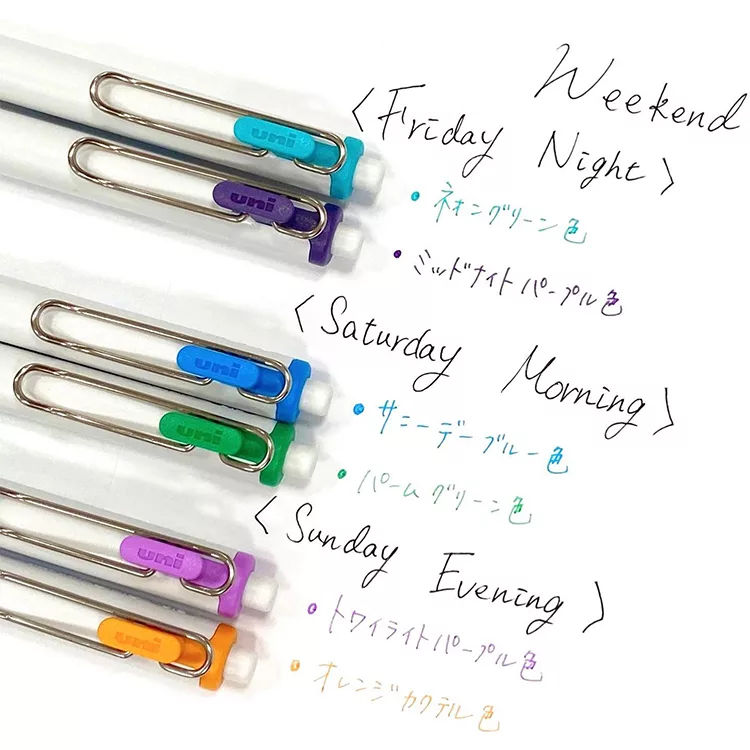 Weekend
< Friday Night >
uni
・ネオングリーン色
uni
・ミッドナイトパープル色
< Saturday Morning >
uni
・サニーデーブルー色
uni
・パームグリーン色
< Sunday Evening >
uni
・トワイライトパープル色
uni
・オレンジカクテル色